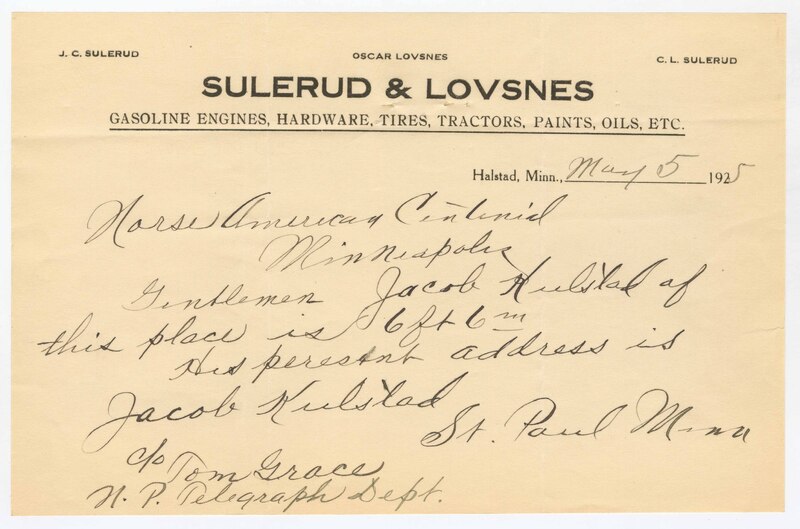 J. C. SULERUD
OSCAR LOVSNES
C. L. SULERUD
SULERUD & LOVSNES
GASOLINE ENGINES, HARDWARE, TIRES, TRACTORS, PAINTS, OILS, ETC.
Halstad, Minn., May 5 1925
Norse American Centenial
Minneapolis
Gentlemen Jacob Kulstad of
this place is 6 ft 6 in
His peresent address is
Jacob Kulstad
St. Paul Minn
c/o Tom Grace
N. P. Telegraph Dept.